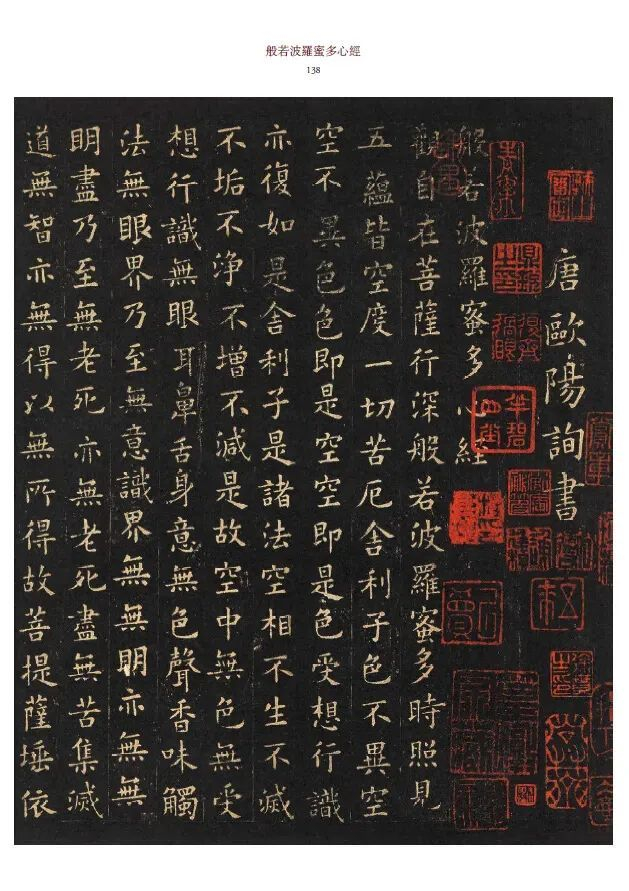 般若波羅蜜多心經
138
唐歐陽詢書
般若波羅蜜多心經
觀自在菩薩行深般若波羅蜜多時照見
五蘊皆空度一切苦厄舍利子色不異空
空不異色色即是空空即是色受想行識
亦復如是舍利子是諸法空相不生不滅
不垢不淨不增不減是故空中無色無受
想行識無眼耳鼻舌身意無色聲香味觸
法無眼界乃至無意識界無無明亦無無
明盡乃至無老死亦無老死盡無苦集滅
道無智亦無得以無所得故菩提薩埵依